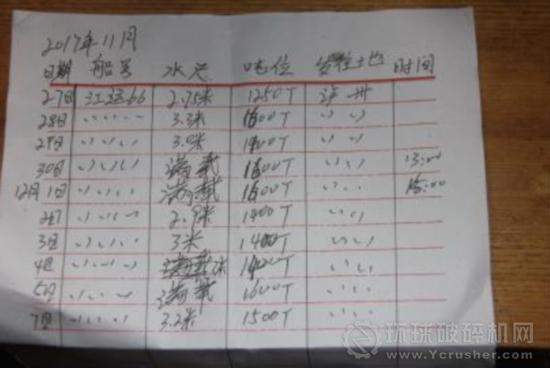 2017年11月
日期 船号 水尺 吨位 发往土地 时间
27日 江运66 2.75米 1250T 泸州
28日 〃 〃 3.3米 1600T 〃
29日 〃 〃 3.0米 1400T 〃
30日 〃 〃 满载 1600T 〃 13:00
12月1日 〃 〃 满载 1600T 〃 15:00
2日 〃 〃 2.9米 1400T 〃
3日 〃 〃 3米 1400T 〃
4日 〃 〃 满载 〃
5日 〃 〃 满载 1600T 〃
7日 〃 〃 3.2米 1500T 〃
环球破碎机网
www.Ycrusher.com